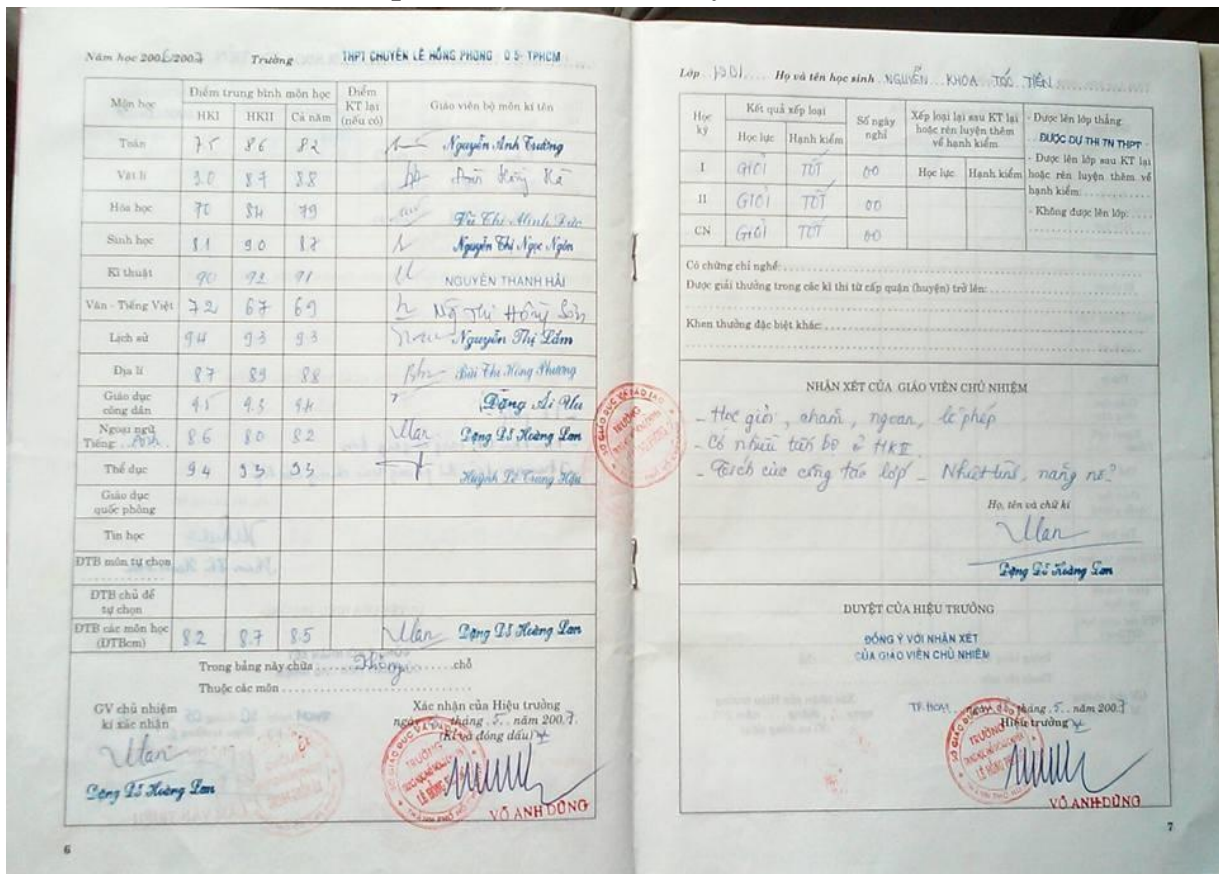 Năm học 2006/2007 Trường THPT CHUYÊN LÊ HỒNG PHONG Q 5- TPHCM
Môn học Điểm trung bình môn học Điểm KT lại (nếu có) Giáo viên bộ môn kí tên
HKI HKII Cả năm
Toán 7.5 8.6 8.2 Nguyễn Anh Trường
Vật lí 9.0 8.7 8.8
Hóa học 7.0 8.4 7.9 Vũ Thị Minh Đức
Sinh học 8.1 9.0 8.7 Nguyễn Thị Ngọc Ngôn
Kĩ thuật 9.0 9.2 9.1 NGUYỄN THANH HẢI
Văn - Tiếng Việt 7.2 6.7 6.9 Ng Thị Hồng
Lịch sử 9.4 9.3 9.3 Nguyễn Thị Lắm
Địa lí 8.7 8.9 8.8 Bùi Thị Hồng Phượng
Giáo dục công dân 9.5 9.3 9.4 Đặng Ái
Ngoại ngữ Tiếng Anh 8.6 8.0 8.2 Ulan Đặng Hoàng Lan
Thể dục 9.4 9.3 9.3 Huỳnh Trung Hậu
Giáo dục quốc phòng
Tin học
ĐTB môn tự chọn
ĐTB chủ đề tự chọn
ĐTB các môn học (ĐTBcm) 8.2 8.7 8.5 Ulan Đặng Hoàng Lan
Trong bảng này chữa Không chỗ
Thuộc các môn
GV chủ nhiệm kí xác nhận
Ulan
Đặng Hoàng Lan
Xác nhận của Hiệu trưởng
ngày tháng 5 năm 2007.
(Kí và đóng dấu)
VÕ ANH DŨNG
6
Lớp 12D1 Họ và tên học sinh NGUYỄN KHOA TÓC TIÊN
Học kỳ Kết quả xếp loại Số ngày nghỉ Xếp loại lại sau KT lại hoặc rèn luyện thêm về hạnh kiểm
Học lực Hạnh kiểm Học lực Hạnh kiểm
I GIỎI TỐT 00
II GIỎI TỐT 00
CN GIỎI TỐT 00
- Được lên lớp thẳng:
ĐƯỢC DỰ THI TN THPT
- Được lên lớp sau KT lại
hoặc rèn luyện thêm về
hạnh kiểm:
- Không được lên lớp:
Có chứng chỉ nghề:
Được giải thưởng trong các kì thi từ cấp quận (huyện) trở lên:
Khen thưởng đặc biệt khác:
NHẬN XÉT CỦA GIÁO VIÊN CHỦ NHIỆM
- Học giỏi, chăm, ngoan, lễ phép
- Có nhiều tiến bộ ở HKII.
- Tích cực công tác lớp - Nhiệt tình, năng nổ
Họ, tên và chữ kí
Ulan
Đặng Hoàng Lan
DUYỆT CỦA HIỆU TRƯỞNG
ĐỒNG Ý VỚI NHẬN XÉT
CỦA GIÁO VIÊN CHỦ NHIỆM
TP.HCM, ngày tháng 5 năm 2007
Hiệu trưởng
VÕ ANH DŨNG
7